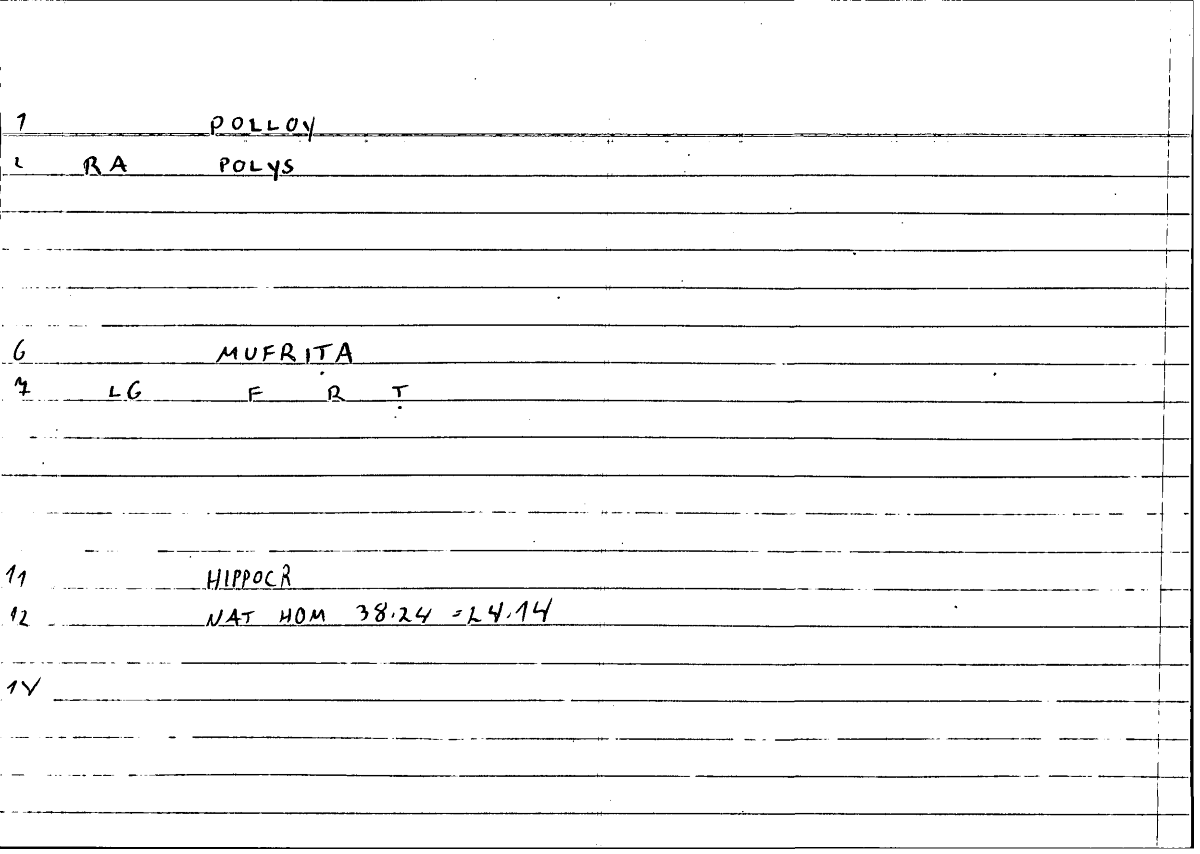 1 POLLOY
2 RA POLYS
6 MUFRITA
7 LG F R T
11 HIPPOCR
12 NAT HOM 38.24 = 24.14
1V